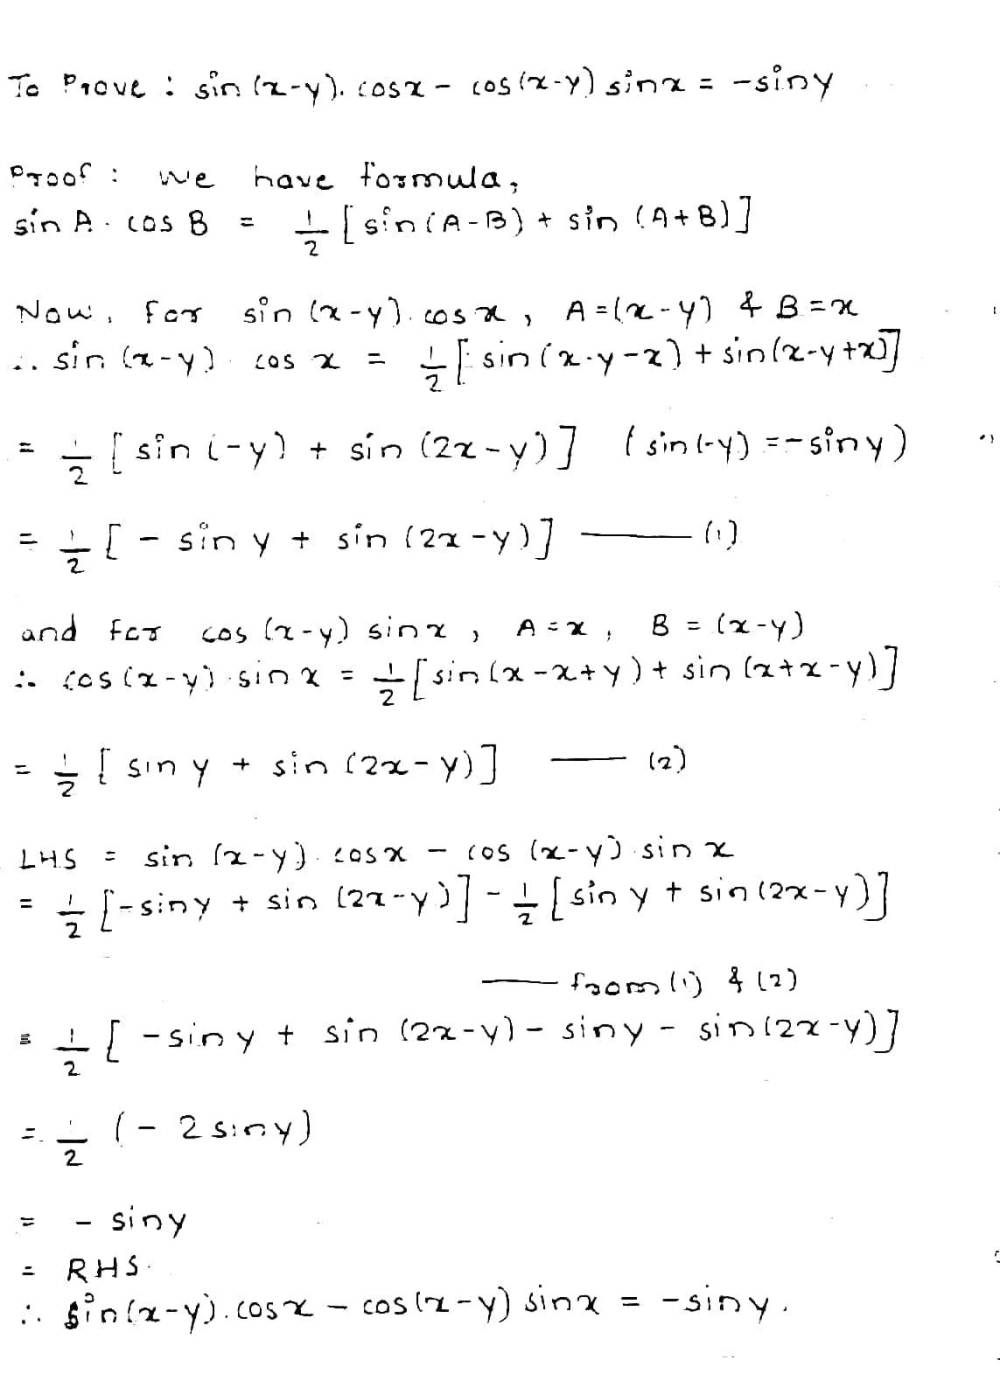 To Prove : sin (x-y). cosx - cos(x-y) sinx = -siny
Proof : we have formula,
sin A . cos B = 1/2 [sin (A-B) + sin (A+B)]
Now, for sin (x-y). cos x, A =(x-y) & B = x
∴ sin (x-y) cos x = 1/2 [sin (x-y-x) + sin (x-y+x)]
= 1/2 [sin (-y) + sin (2x-y)] (sin (-y) = -siny)
= 1/2 [- sin y + sin (2x-y)] —— (1)
and for cos (x-y) sinx, A = x, B = (x-y)
∴ cos (x-y) . sin x = 1/2 [sin (x-x+y) + sin (x+x-y)]
= 1/2 [sin y + sin (2x-y)] —— (2)
LHS = sin (x-y). cosx - cos (x-y) . sin x
= 1/2 [-siny + sin (2x-y)] - 1/2 [sin y + sin (2x-y)]
—— from (1) & (2)
= 1/2 [-siny + sin (2x-y) - siny - sin (2x-y)]
= 1/2 (- 2 siny)
= - siny
= RHS.
∴ sin(x-y). cosx - cos (x-y) sinx = -siny.